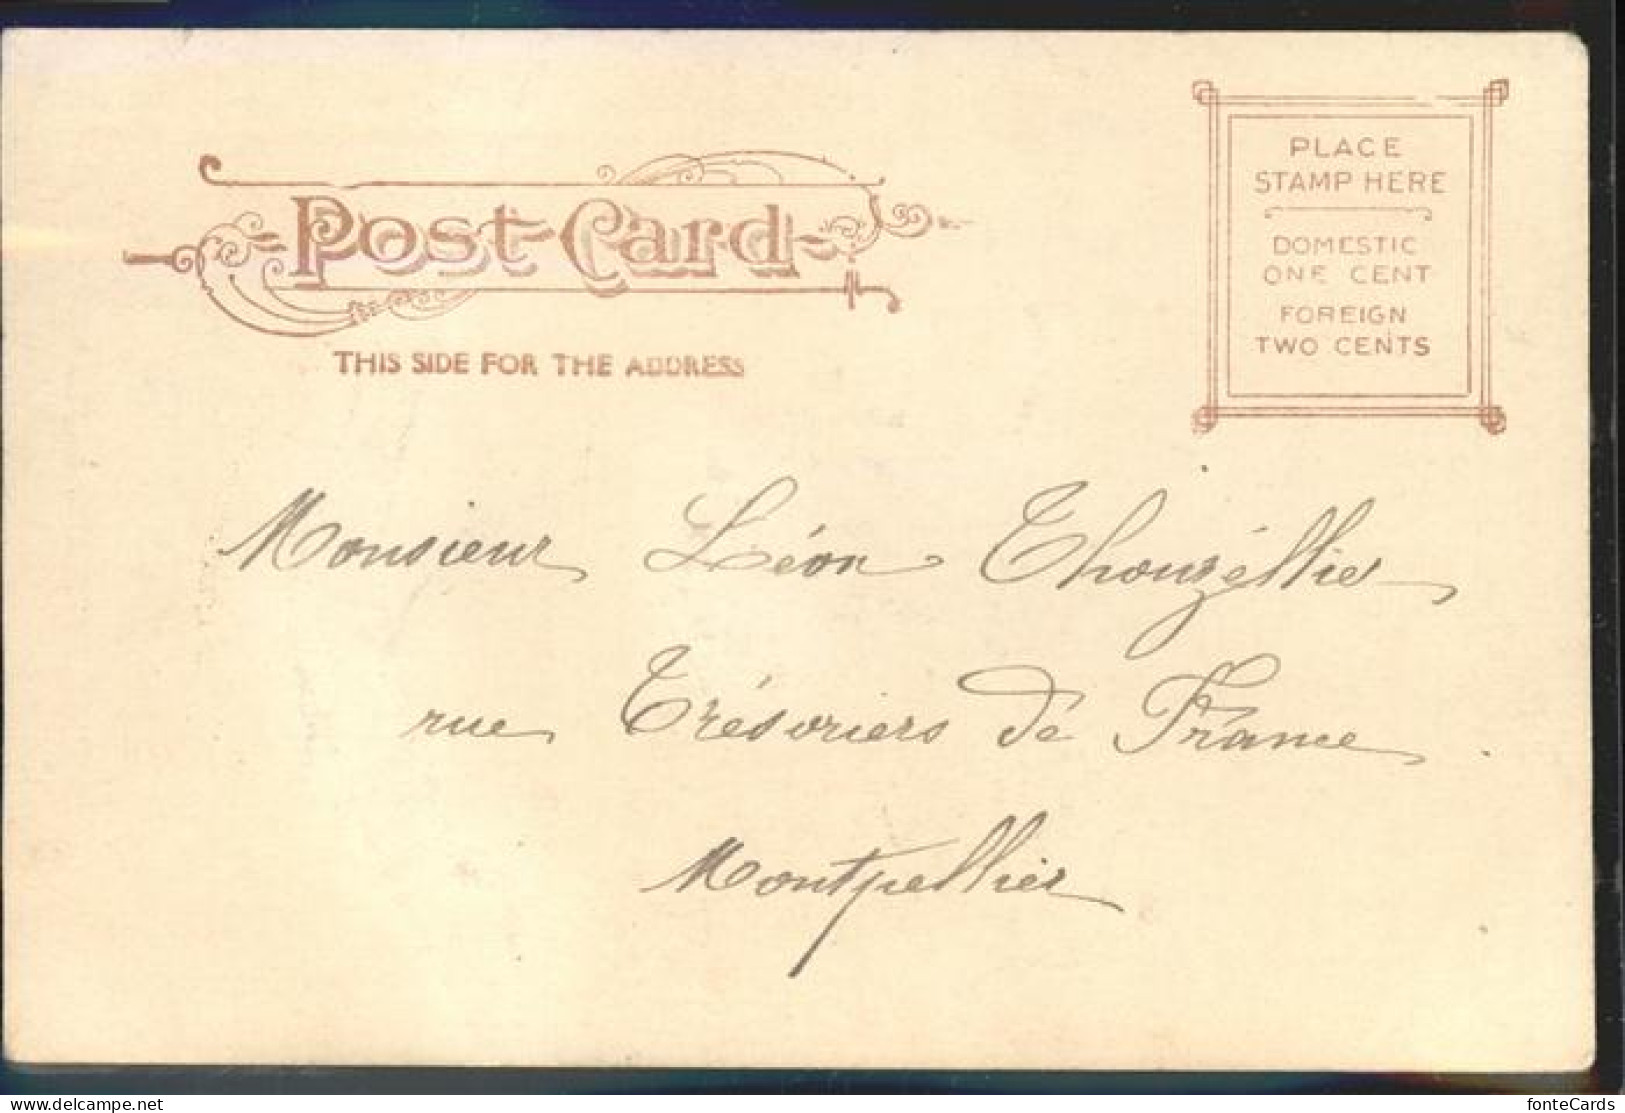 Post Card
THIS SIDE FOR THE ADDRESS
PLACE
STAMP HERE
DOMESTIC
ONE CENT
FOREIGN
TWO CENTS
Monsieur Léon Thouzéllier
rue Trésoriers de France.
Montpellier
fonteCards